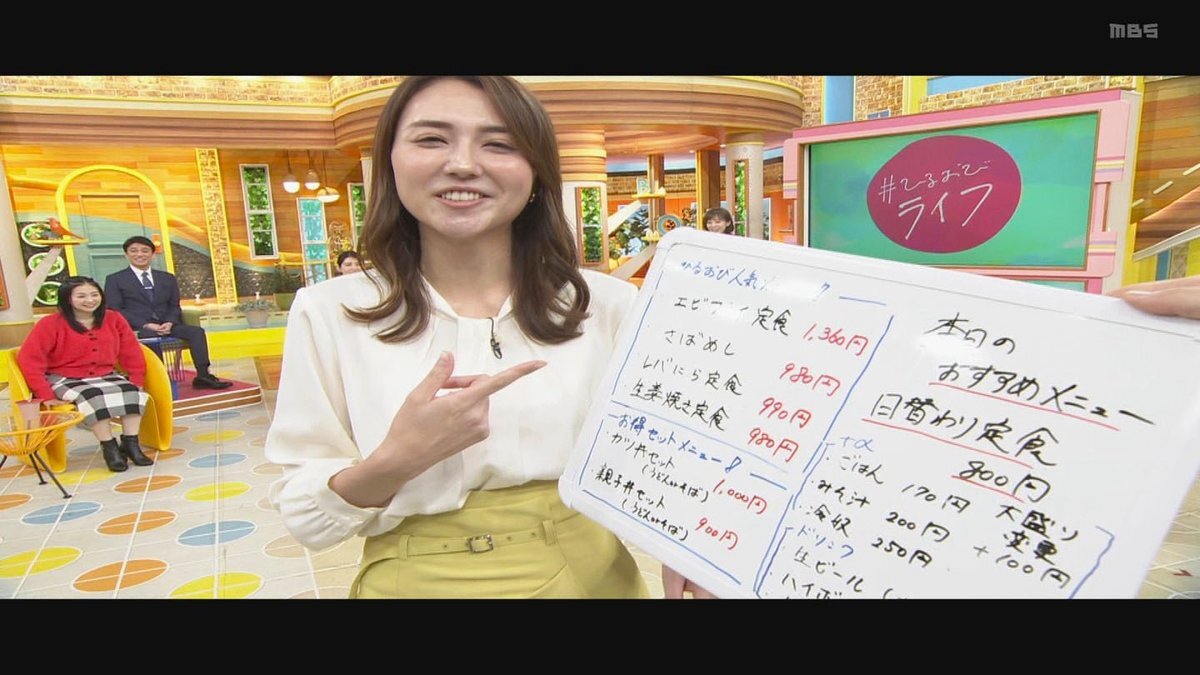 MBS
#ひるおび
ライフ
ひるおび人気
エビフライ定食 1,360円
・さばめし 980円
・レバにら定食 990円
・生姜焼き定食 980円
お得セットメニュー
・カツ丼セット 1,000円
(うどんorそば)
・親子丼セット 900円
(うどんorそば)
本日の
おすすめメニュー
日替わり定食
800円
+α
・ごはん 170円 大盛り
変更
+100円
みそ汁 200円
250円
ドリンク
・生ビール